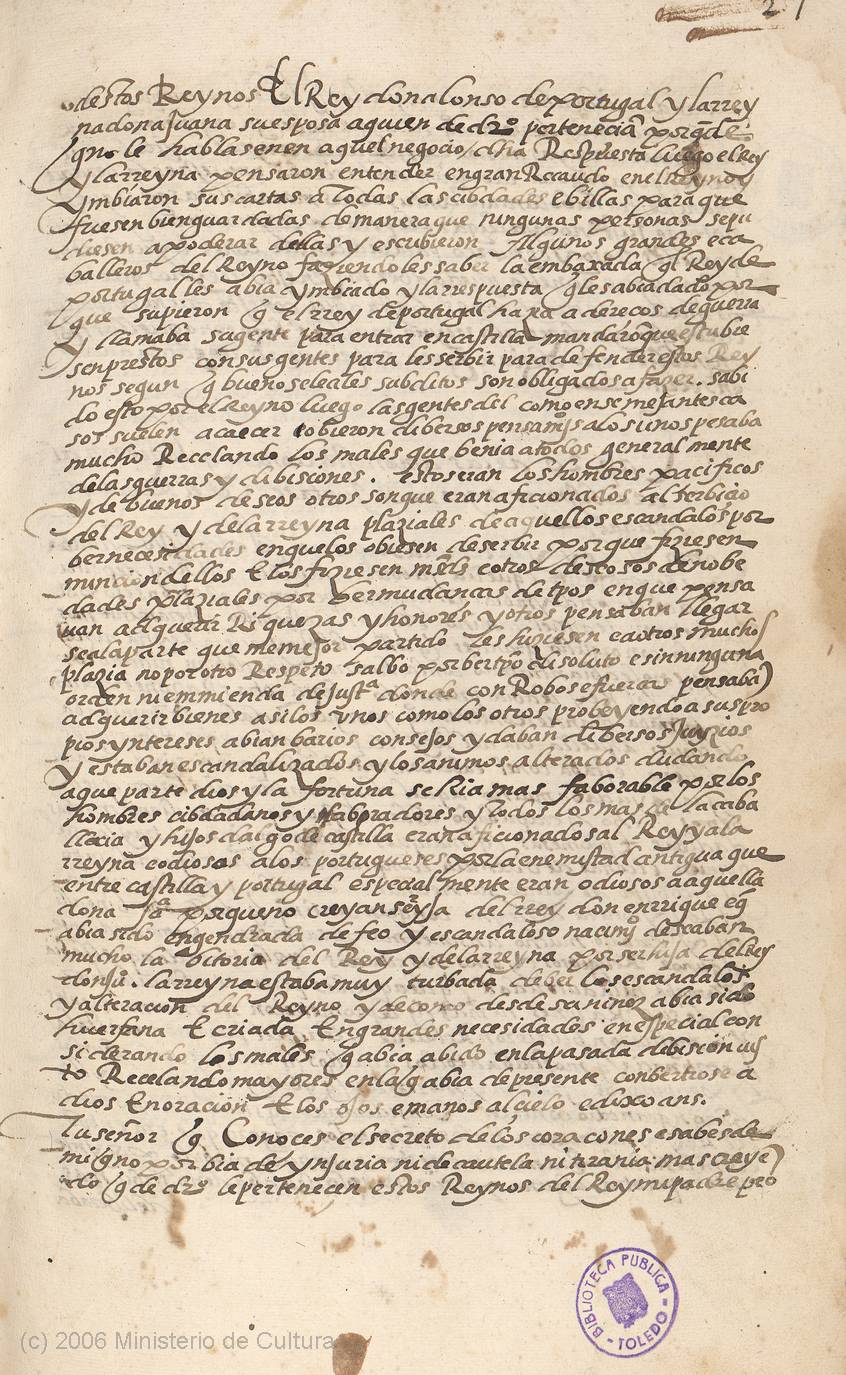 21
destos Reynos El Rey don alonso de portugal y la rrey
na dona Juana su esposa a quien de dro pertenecia por ende
q no le hablasen en aquel negocio / dha Respuesta luego el Rey
y la rreyna pensaron entender en gran Recaudo en el rreyno y
ymbiaron sus cartas a todas las cibdades e billas para que
fuesen bien guardadas de manera que ningunas personas se pu
diesen apoderar dellas y escribieron Algunos grandes e ca
balleros del Reyno faziendoles saber la embaxada q l Rey de
portugal les abia ymbiado y la rrespuesta q le sabia dado por
que supieron q el rrey de portugal hazia aderecos de guerra
y llamaba su gente para entrar en castilla mandaron que estubie
sen prestos con sus gentes para les serbir para defender estos Rey
nos segun q buenos e leales subditos son obligados a fazer. sabi
do esto por el Reyno luego las gentes del como en semejantes ca
sos suelen acaecer tobieron dibersos pensamjos a los unos pesaba
mucho Recelando los males que benia a todos general mente
de las guerras y dibisiones. estos eran los hombres pacificos
y de buenos deseos otros son que eran aficionados al serbicio
del Rey y de la rreyna plaziales de aquellos escandalos por
ber necesidades en que los obiesen de serbir por que fiziesen
mincion dellos E los fiziesen mrds e otros deseosos de nobe
dades plaziales por ber mudancas de tpos en que pensa
uan adquerir Riquezas y honores y otros pensaban llegar
se a la parte que me mejor partido les hiziesen e a otros muchos
plazia no por otro Respeto salbo por ber tpo disoluto e sin ninguna
orden ni emmienda de justa donde con Robos e fuerzas pensaba
adquerir bienes asi los vnos como los otros probeyendo a sus pro
pios yntereses abian barios consejos y daban dibersos Juyzios
y estaban escandalizados y los animos alterados dudando
a que parte dios y la fortuna seria mas faborable por los
hombres cibdadanos y labradores y todos los mas de la caba
lleria y hijos dalgo de castilla eran aficionados al Rey y a la
rreyna e odiosos a los portugueses por la enemistad antigua que
entre castilla y portugal especial mente eran odiosos a aquella
dona Ja porque no creyan ser yja del rrey don enrrique e q
abia sido engendrada de feo y escandaloso nacimjo deseaban
mucho la bitoria del Rey y de la rreyna por ser hija del Rey
don ju. la rreyna estaba muy turbada de ber los escandalos
y alteracion del Reyno y de como desde su ninez abia sido
huerfana E criada En grandes necesidades en especial con
siderando los males q abia abido en la pasada dibision vis
to Recelando mayores en la q abia de presente conbertiose a
dios En oracion E los ojos e manos al cielo e dixo ans.
Tu señor q Conoces el secreto de los coracones e sabes de
mi q no por bia de ynjuria ni de cautela ni tirania mas creye
do q de dro le pertenecen estos Reynos del Rey mi padre pro
BIBLIOTECA PUBLICA - TOLEDO -
(c) 2006 Ministerio de Cultura